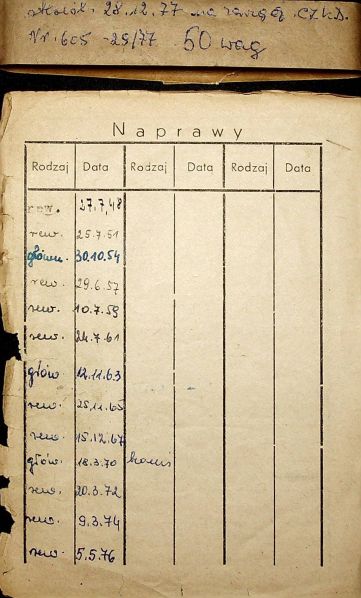 28.12.77 na
Nr. 605-25/77 50 wag
Naprawy
Rodzaj Data Rodzaj Data Rodzaj Data
rew. 27.7.48
rew. 25.7.51
główn. 30.10.54
rew. 29.6.57
rew. 10.7.59
rew. 24.7.61
głów 12.11.63
rew. 25.11.65
rew. 15.12.67
głów. 18.3.70
rew. 20.3.72
rew. 9.3.74
rew. 5.5.76